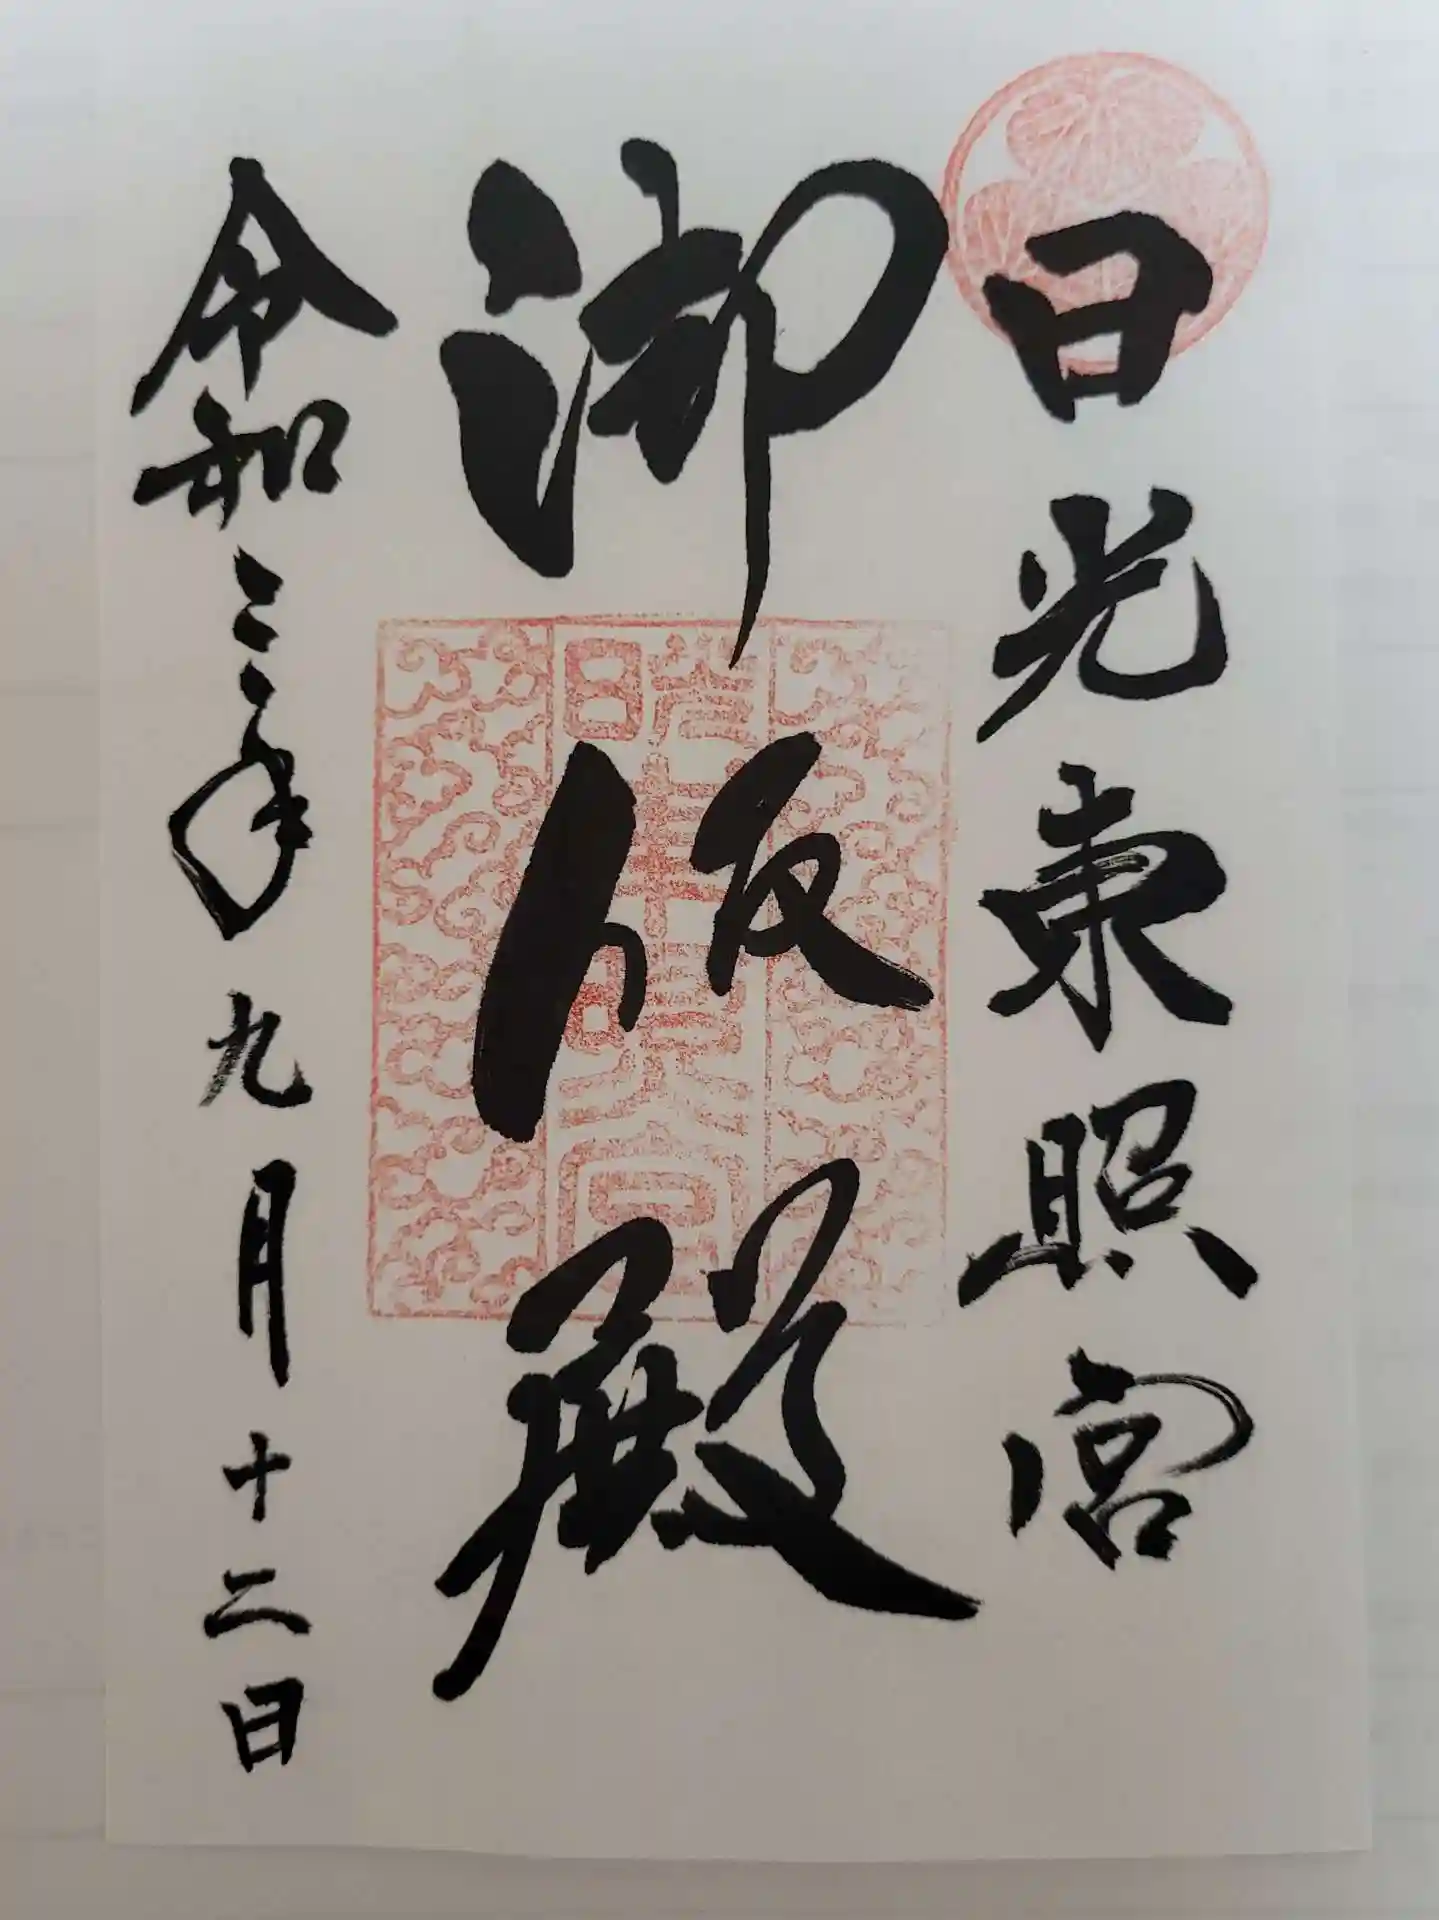 日光東照宮
御仮殿
令和三年九月十二日
日光
東照宮